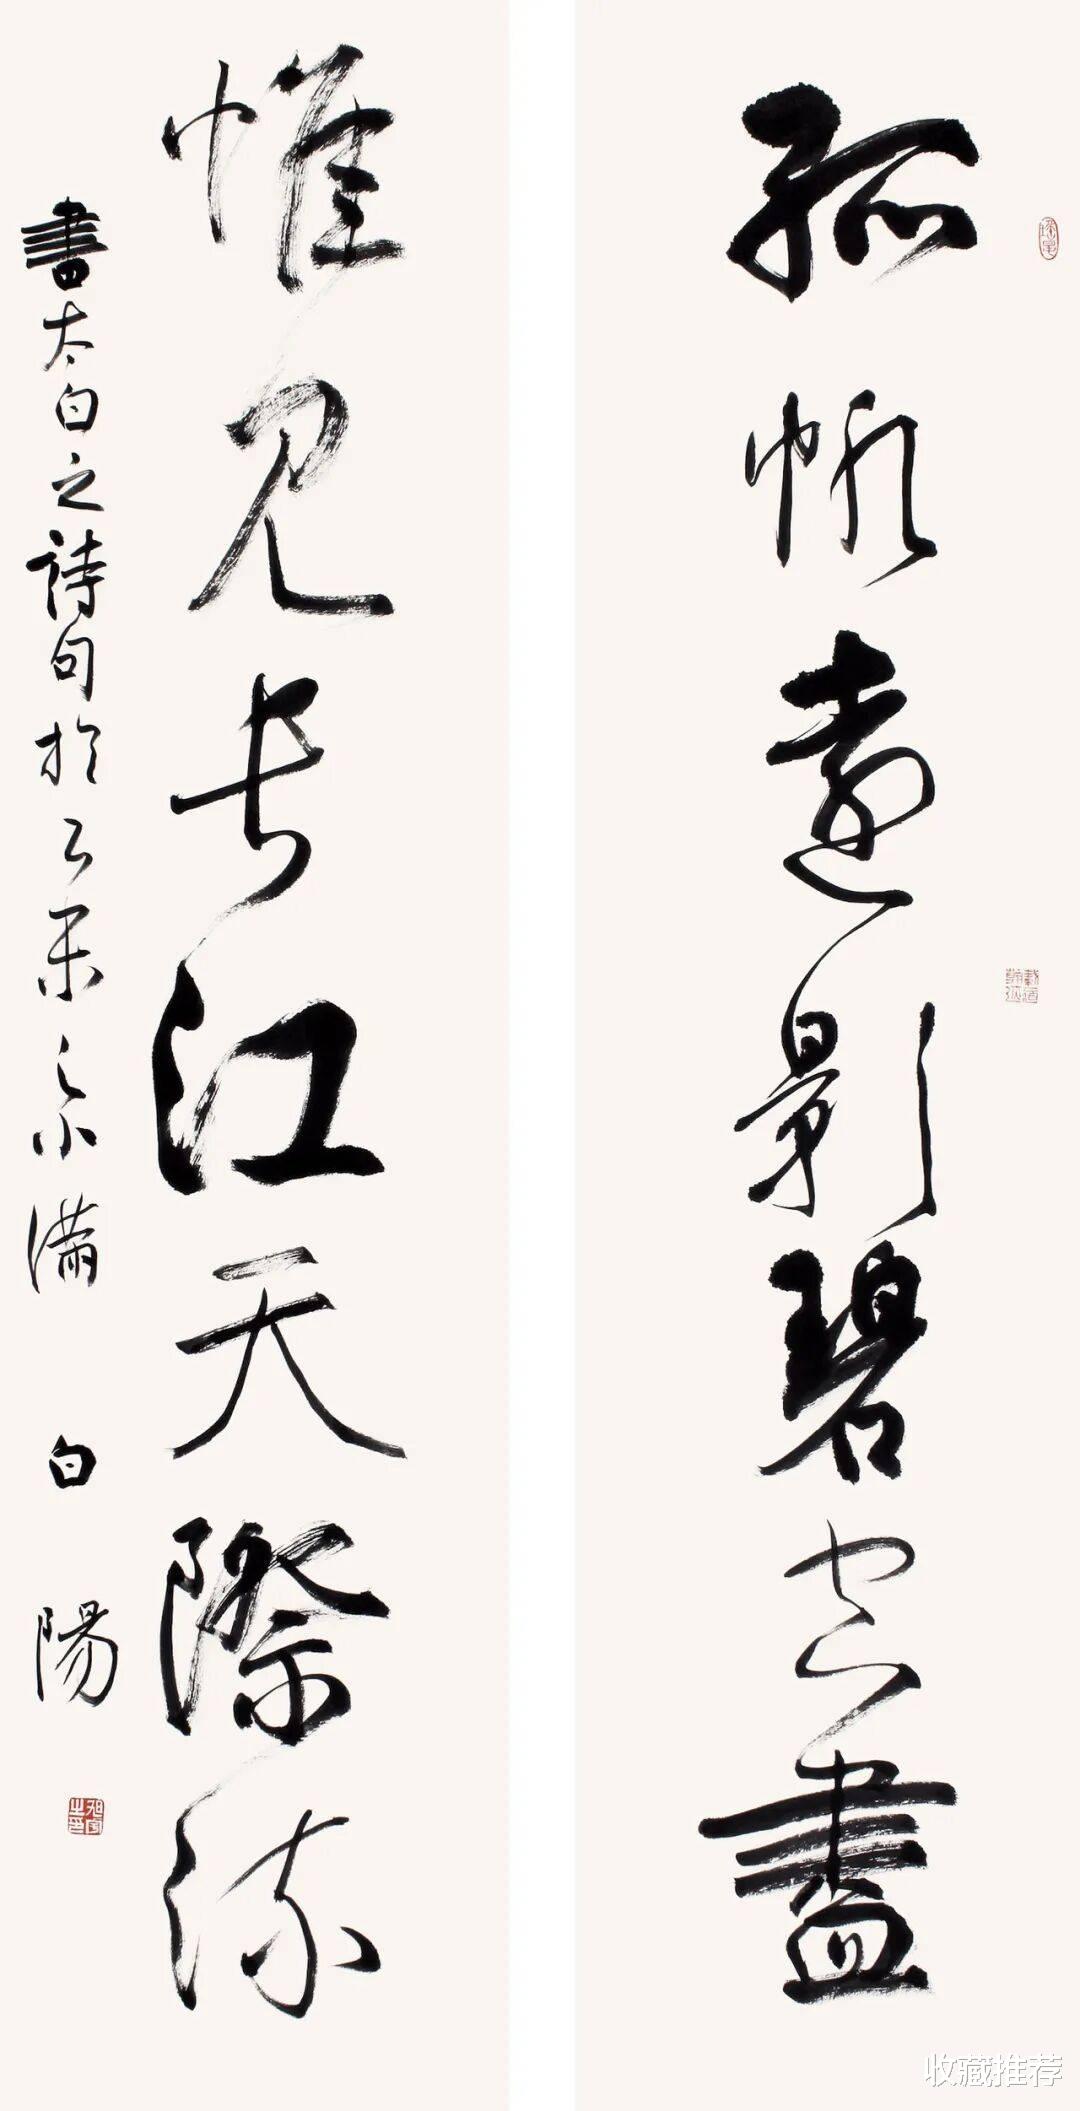 孤帆遠影碧空盡
惟見長江天際流
書太白之詩句於乙未之小滿 白陽
收藏推荐